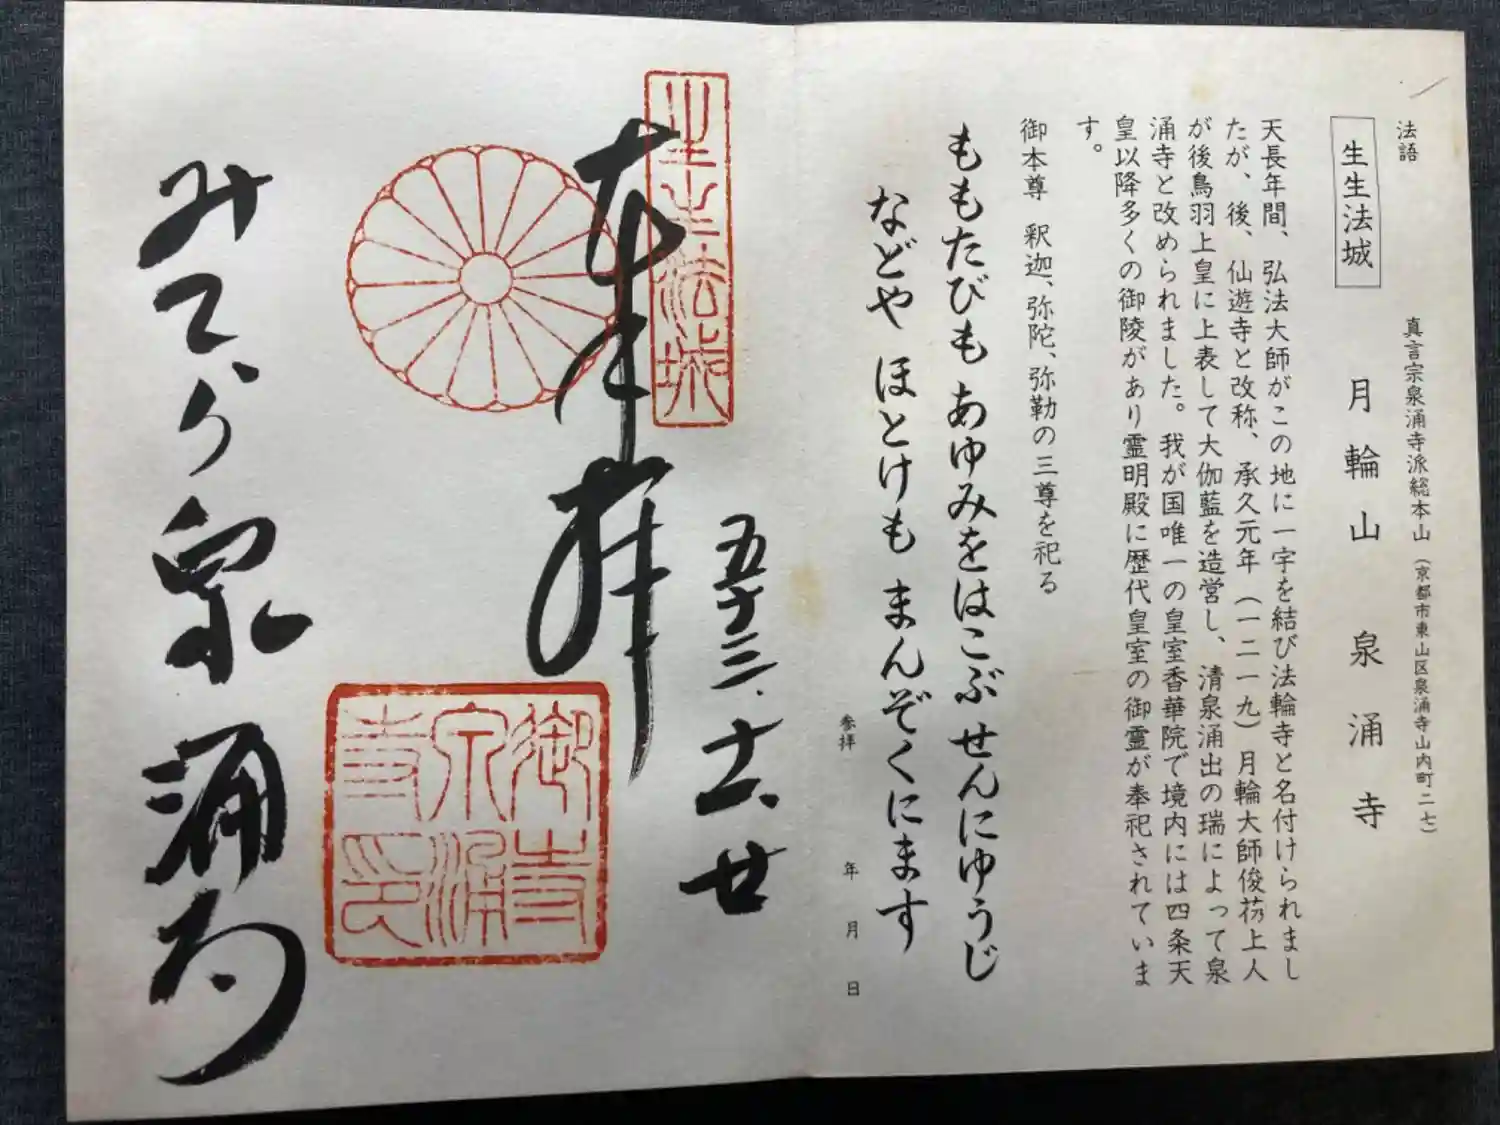 法語
真言宗泉涌寺派総本山(京都市東山区泉涌寺山内町二七)
生生法城
月輪山 泉涌寺
天長年間、弘法大師がこの地に一宇を結び法輪寺と名付けられまし
たが、後、仙遊寺と改称、承久元年(一二一九)月輪大師俊芿上人
が後鳥羽上皇に上表して大伽藍を造営し、清泉涌出の瑞によって泉
涌寺と改められました。我が国唯一の皇室香華院で境内には四条天
皇以降多くの御陵があり霊明殿に歴代皇室の御霊が奉祀されていま
す。
御本尊 釈迦、弥陀、弥勒の三尊を祀る
ももたびも あゆみをはこぶ せんにゆうじ
などや ほとけも まんぞくにます
参拝 年 月 日
生生法城
五十三.十一.廿
奉拝
御寺泉涌寺印
みてら泉涌寺